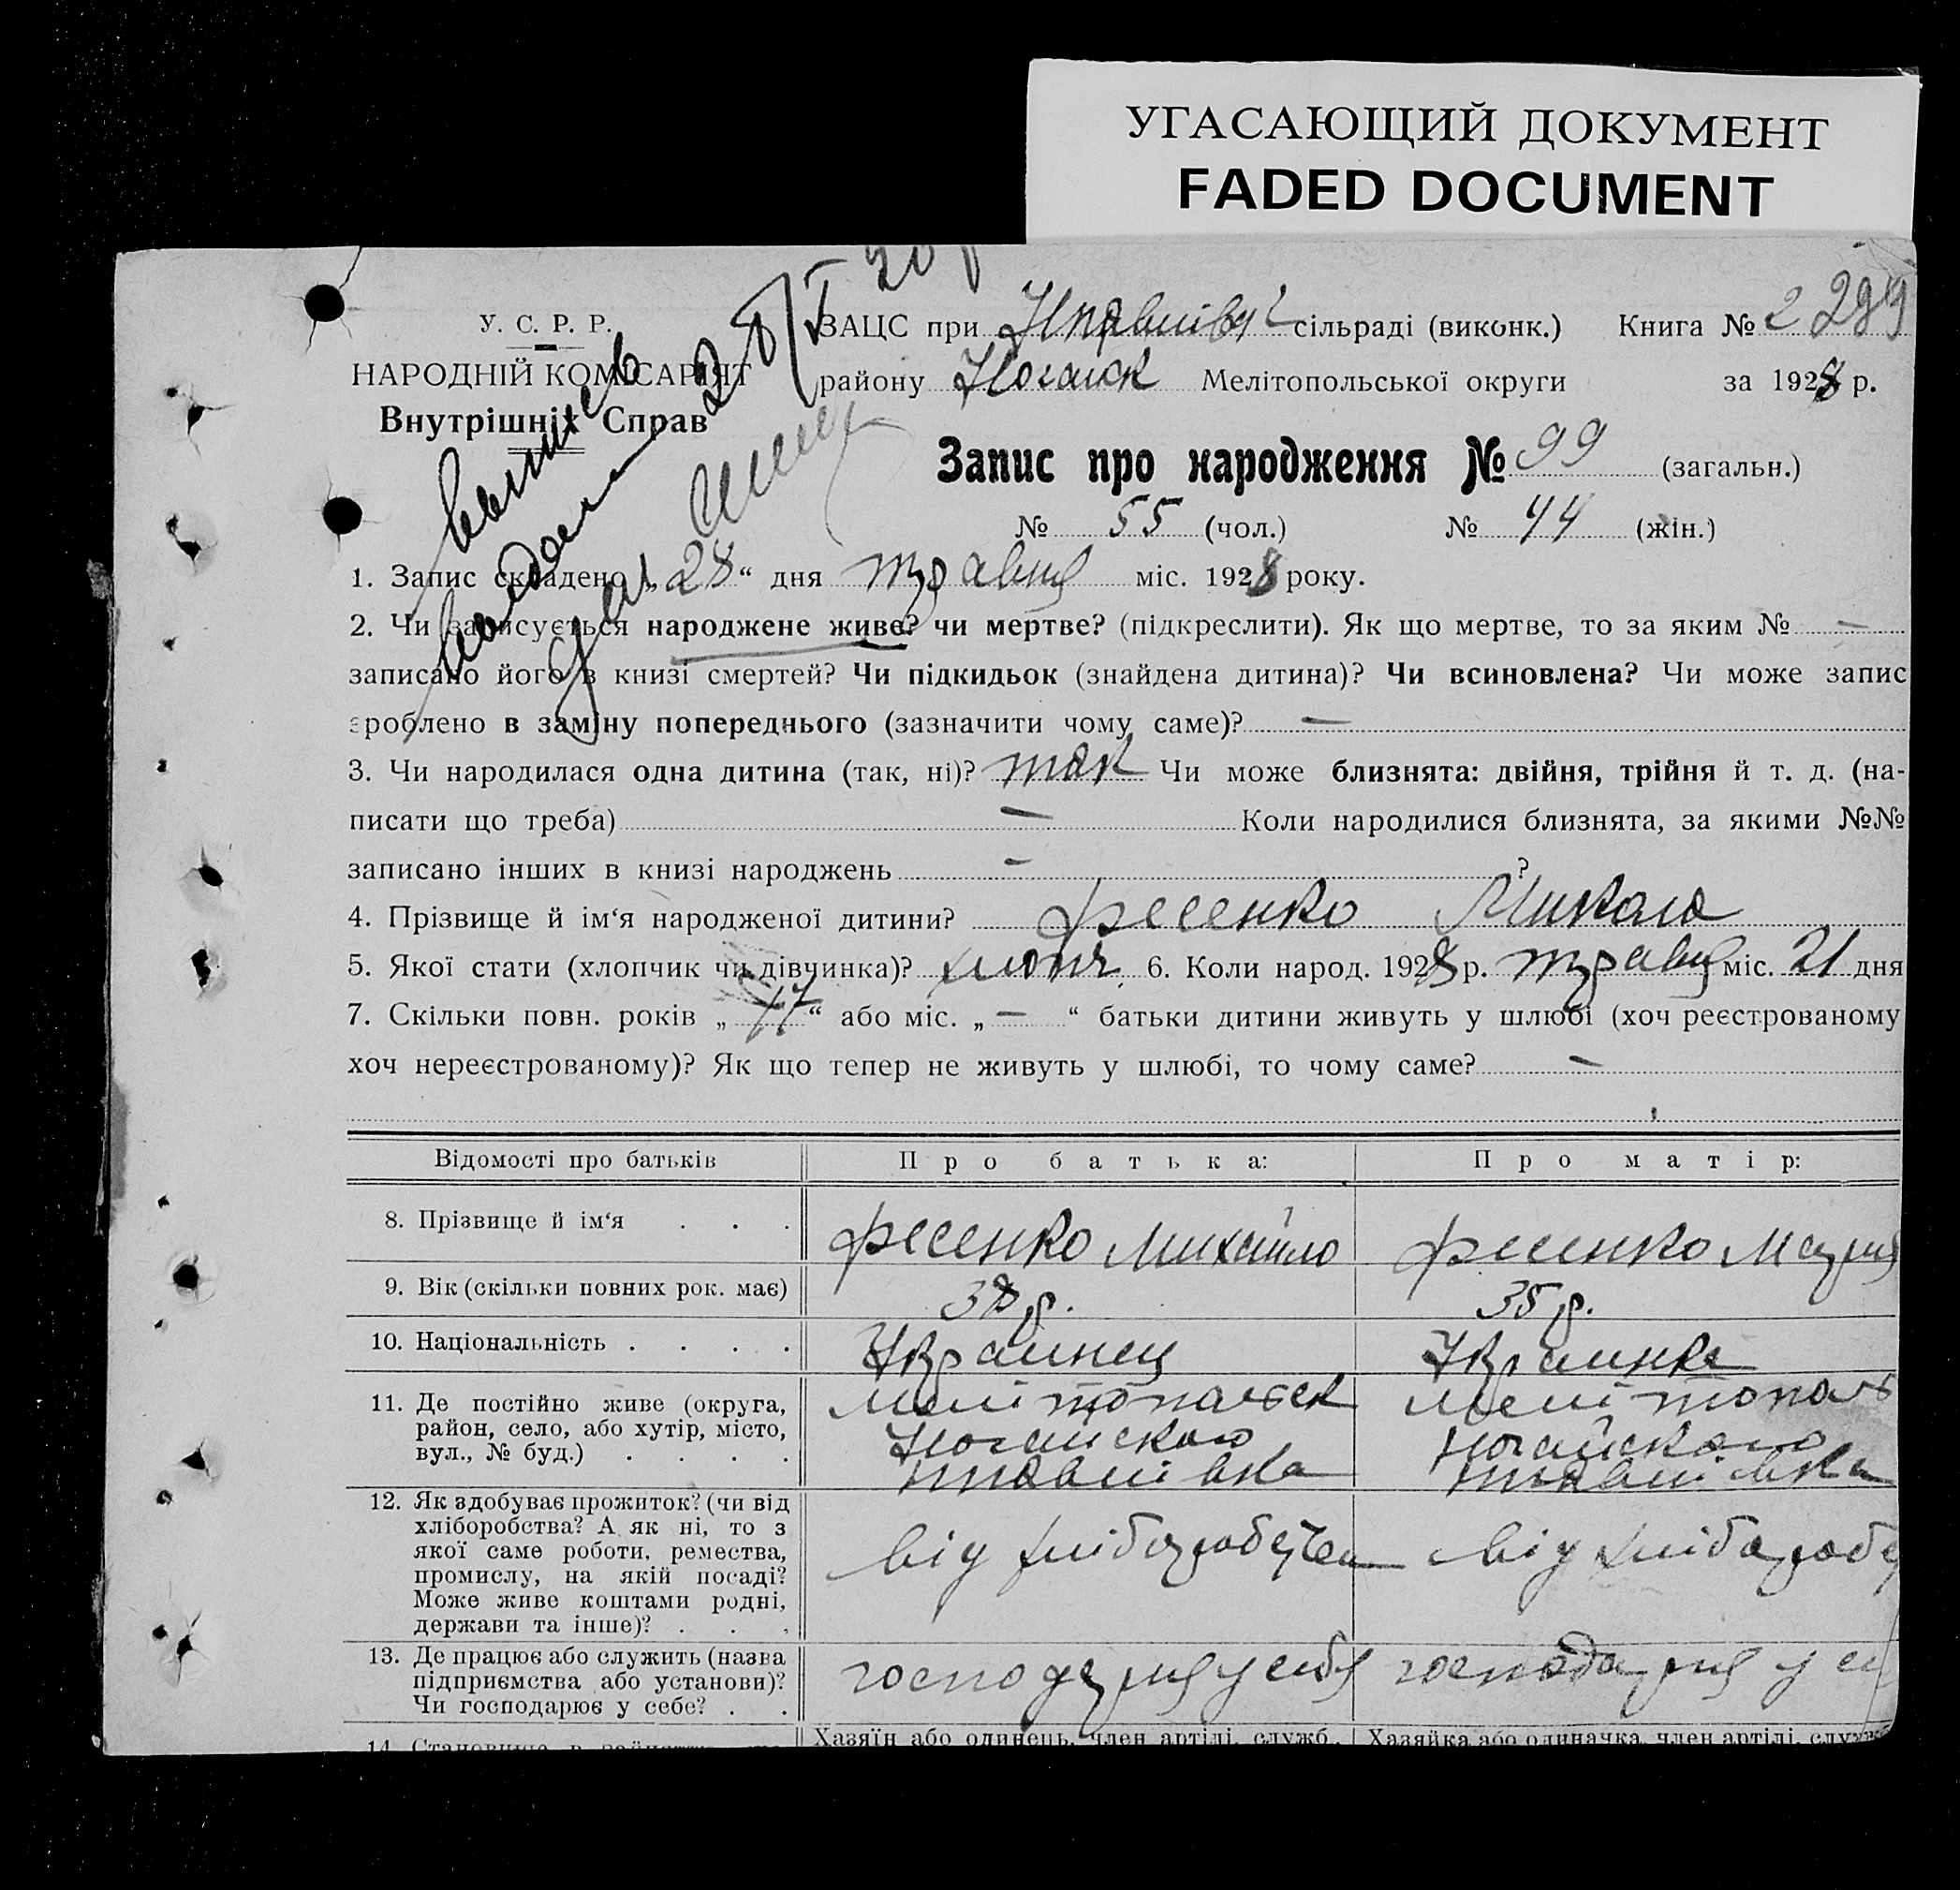 УГАСАЮЩИЙ ДОКУМЕНТ
FADED DOCUMENT
У. С. Р. Р.
НАРОДНІЙ КОМІСАРІЯТ
Внутрішніх Справ
ЗАЦС при сільраді (виконк.) Книга № 2
району Ногайск Мелітопольської округи за 1928 р.
Запис про народження № 99 (загальн.)
№ 55 (чол.) № 44 (жін.)
1. Запис складено „28“ дня травня міс. 1928 року.
2. Чи записується народжене живе? чи мертве? (підкреслити). Як що мертве, то за яким № —
записано його в книзі смертей? Чи підкидьок (знайдена дитина)? Чи всиновлена? Чи може запис
зроблено в заміну попереднього (зазначити чому саме)? —
3. Чи народилася одна дитина (так, ні)? так Чи може близнята: двійня, трійня й т. д. (на-
писати що треба) — Коли народилися близнята, за якими №№
записано інших в книзі народжень — ?
4. Прізвище й ім‘я народженої дитини? Фесенко Микола
5. Якої стати (хлопчик чи дівчинка)? хлопч. 6. Коли народ. 1928 р. травня міс. 21 дня
7. Скільки повн. років „17“ або міс. „—“ батьки дитини живуть у шлюбі (хоч реєстрованому
хоч нереєстрованому)? Як що тепер не живуть у шлюбі, то чому саме? —
Відомості про батьків Про батька: Про матір:
8. Прізвище й ім‘я . . . Фесенко Михайло Фесенко Мария
9. Вік (скільки повних рок. має) 38 р. 35 р.
10. Національність . . . . Украинец Украинка
11. Де постійно живе (округа,
район, село, або хутір, місто,
вул., № буд.) . . . .
Мелітопольск Мелітополь
Ногайского Ногайского
12. Як здобуває прожиток? (чи від
хліборобства? А як ні, то з
якої саме роботи, ремества,
промислу, на якій посаді?
Може живе коштами родні,
держави та інше)? . . .
від від
13. Де працює або служить (назва
підприємства або установи)?
Чи господарює у себе? . .
господария у себя господария у се
14. Становище в
Хазяїн або одинець, член артілі, служб. Хазяйка або одиначка, член артілі, служб